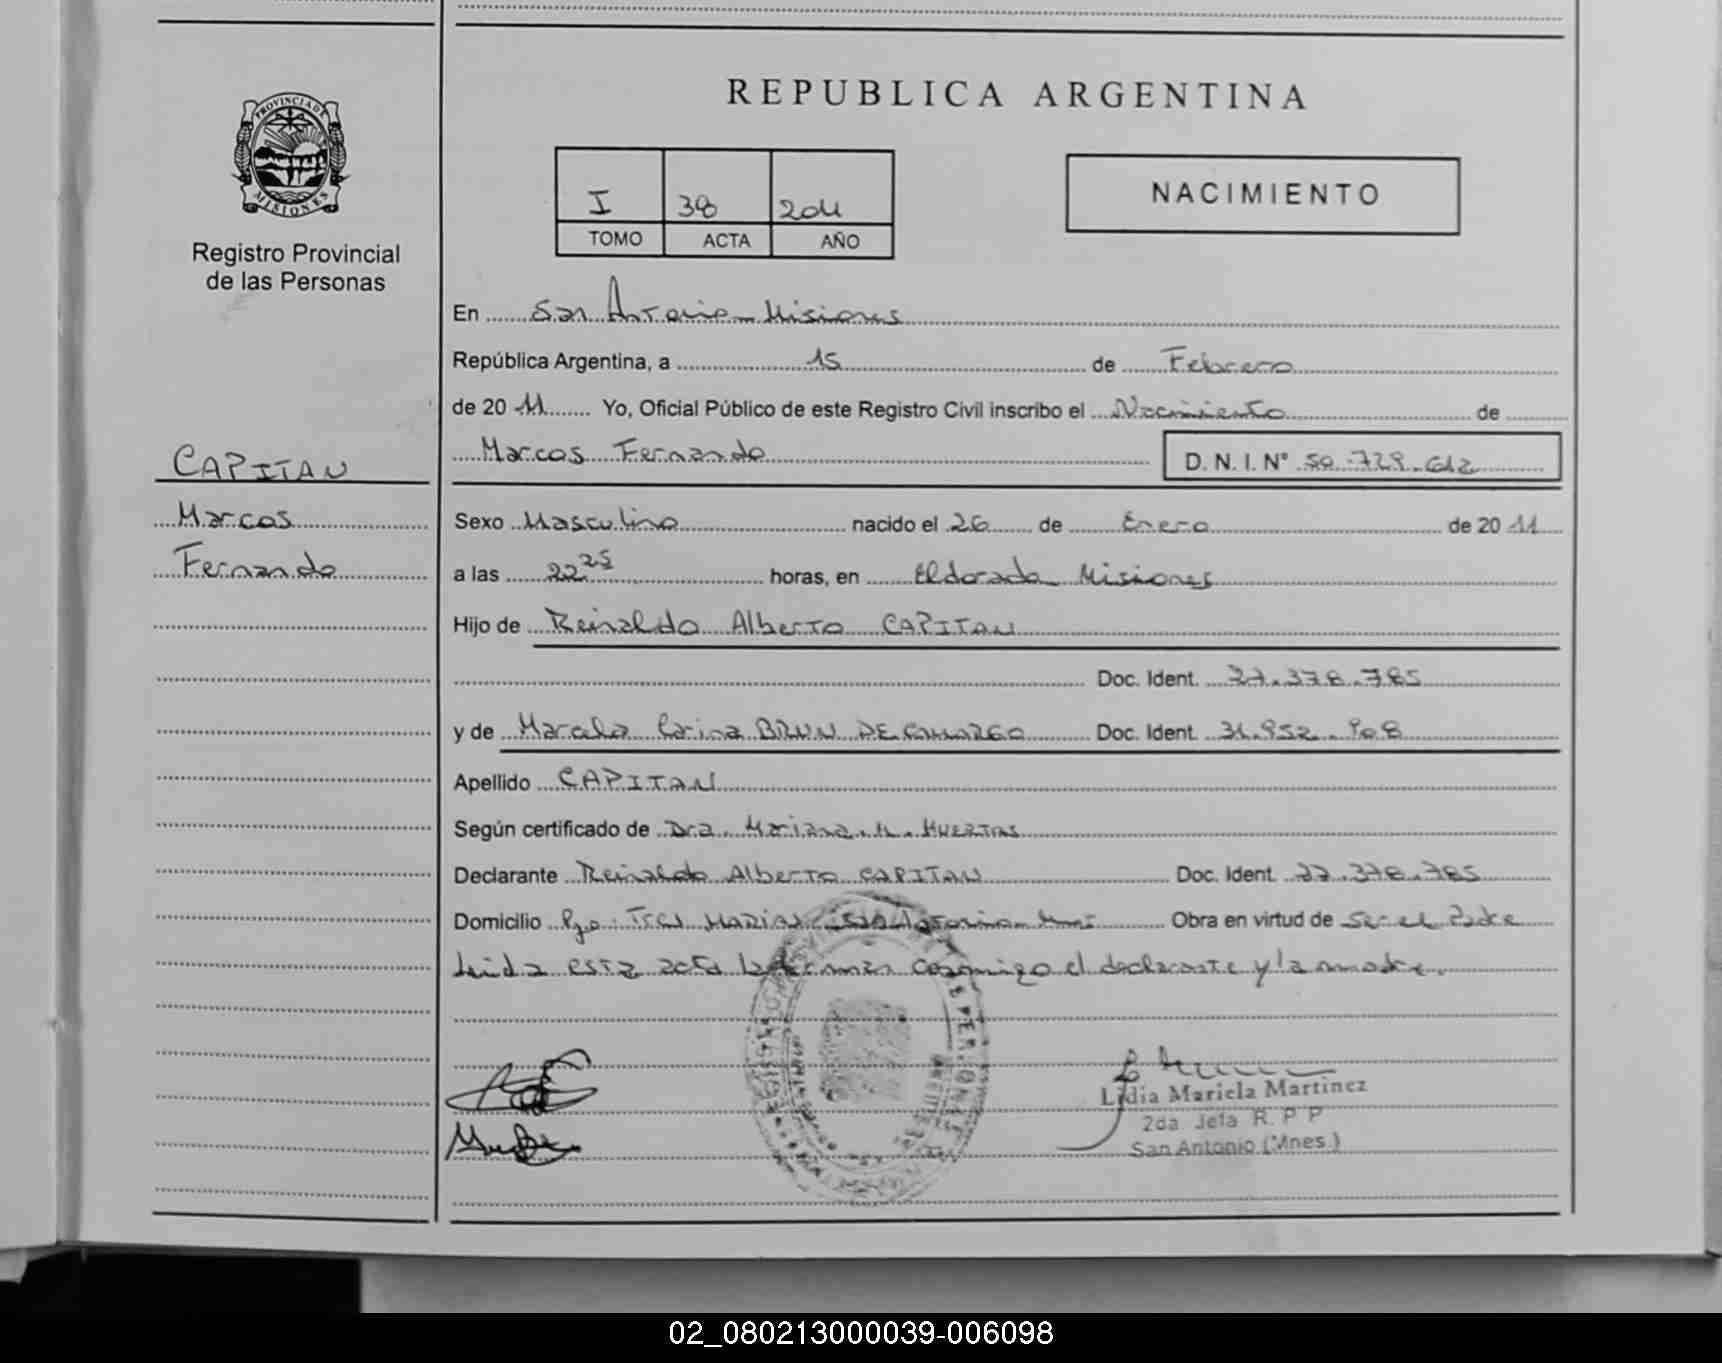 REPUBLICA ARGENTINA
PROVINCIA DE
MISIONES
Registro Provincial
de las Personas
I 38 2011
TOMO ACTA AÑO
NACIMIENTO
En San Antonio - Misiones
República Argentina, a 15 de Febrero
de 20 11 Yo, Oficial Público de este Registro Civil inscribo el Nacimiento de
Marcos Fernando D. N. I. Nº 50.729.612
CAPITAN
Marcos
Fernando
Sexo Masculino nacido el 26 de Enero de 20 11
a las 22 25 horas, en Eldorado Misiones
Hijo de Reinaldo Alberto CAPITAN
Doc. Ident. 27.378.785
y de Marcela Carina BRUN DE CAMARGO Doc. Ident. 31.952.908
Apellido CAPITAN
Según certificado de Dra. Mariana. M. HUERTAS
Declarante Reinaldo Alberto CAPITAN Doc. Ident. 27.378.785
Domicilio San Antonio - Mnes Obra en virtud de Ser el Padre
Leida esta acta la firman conmigo el declarante y la madre.
Lidia Mariela Martinez
2da Jefa R. P P
San Antonio (Mnes.)
02_080213000039-006098